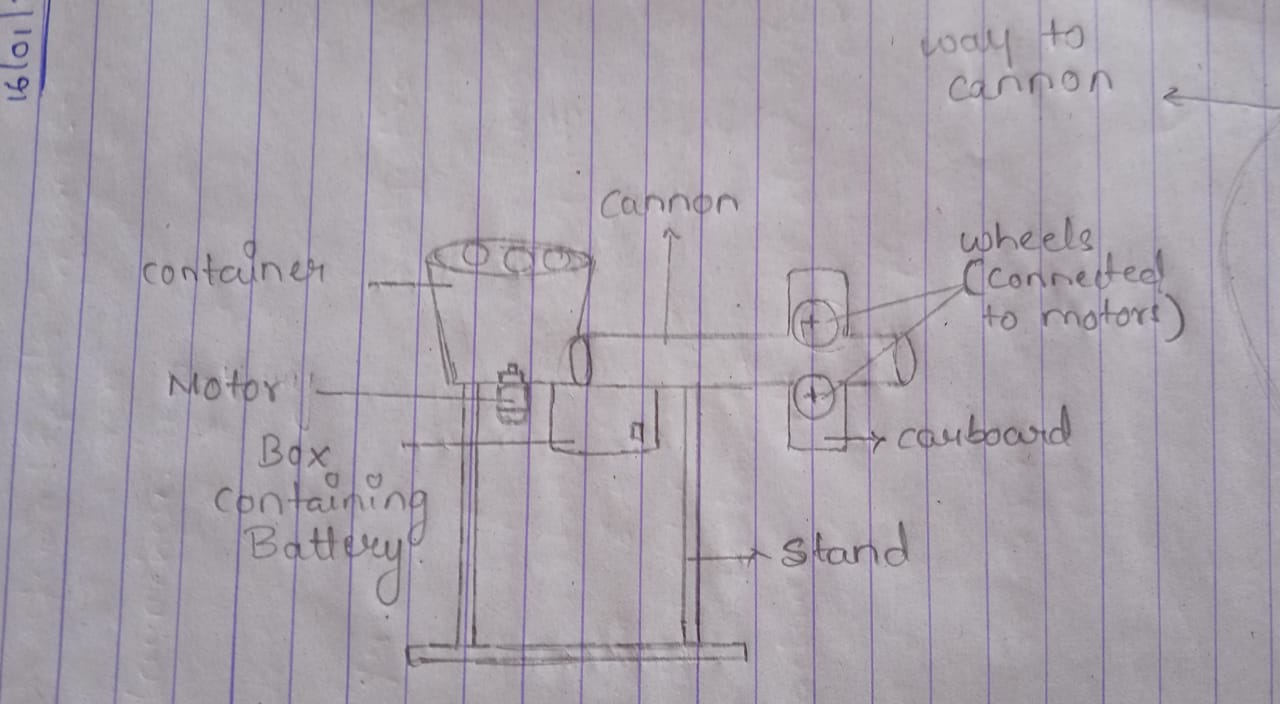 16/01/
way to
cannon
cannon
container
wheels
(connected
to motors)
Motor
cauboard
Box
containing
Battery
stand